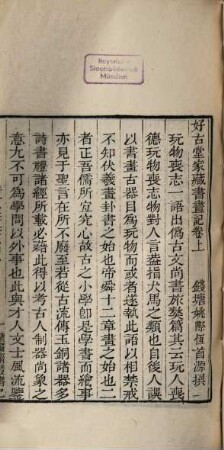 Bayerische
Staatsbibliothek
München
好古堂家藏書畫記卷上
錢塘姚際恆首源撰
玩物喪志一語出偽古文尚書旅獒篇其云玩人喪
德玩物喪志物對人言指犬馬之類也自後人誤
以書畫古器目為玩物而或者遂執此語以相禁戒
不知伏羲畫卦書之始也帝舜十二章畫之始也二
者正吾儒所宜究心故古之小學卽是學書而繪事
亦見于聖言在所不廢至若從古流傳玉銅諸器多
詩書禮諸經所載必藉此得以考古人制器尚象之
意九不可為學問以外事也此與才人文士風流鑒